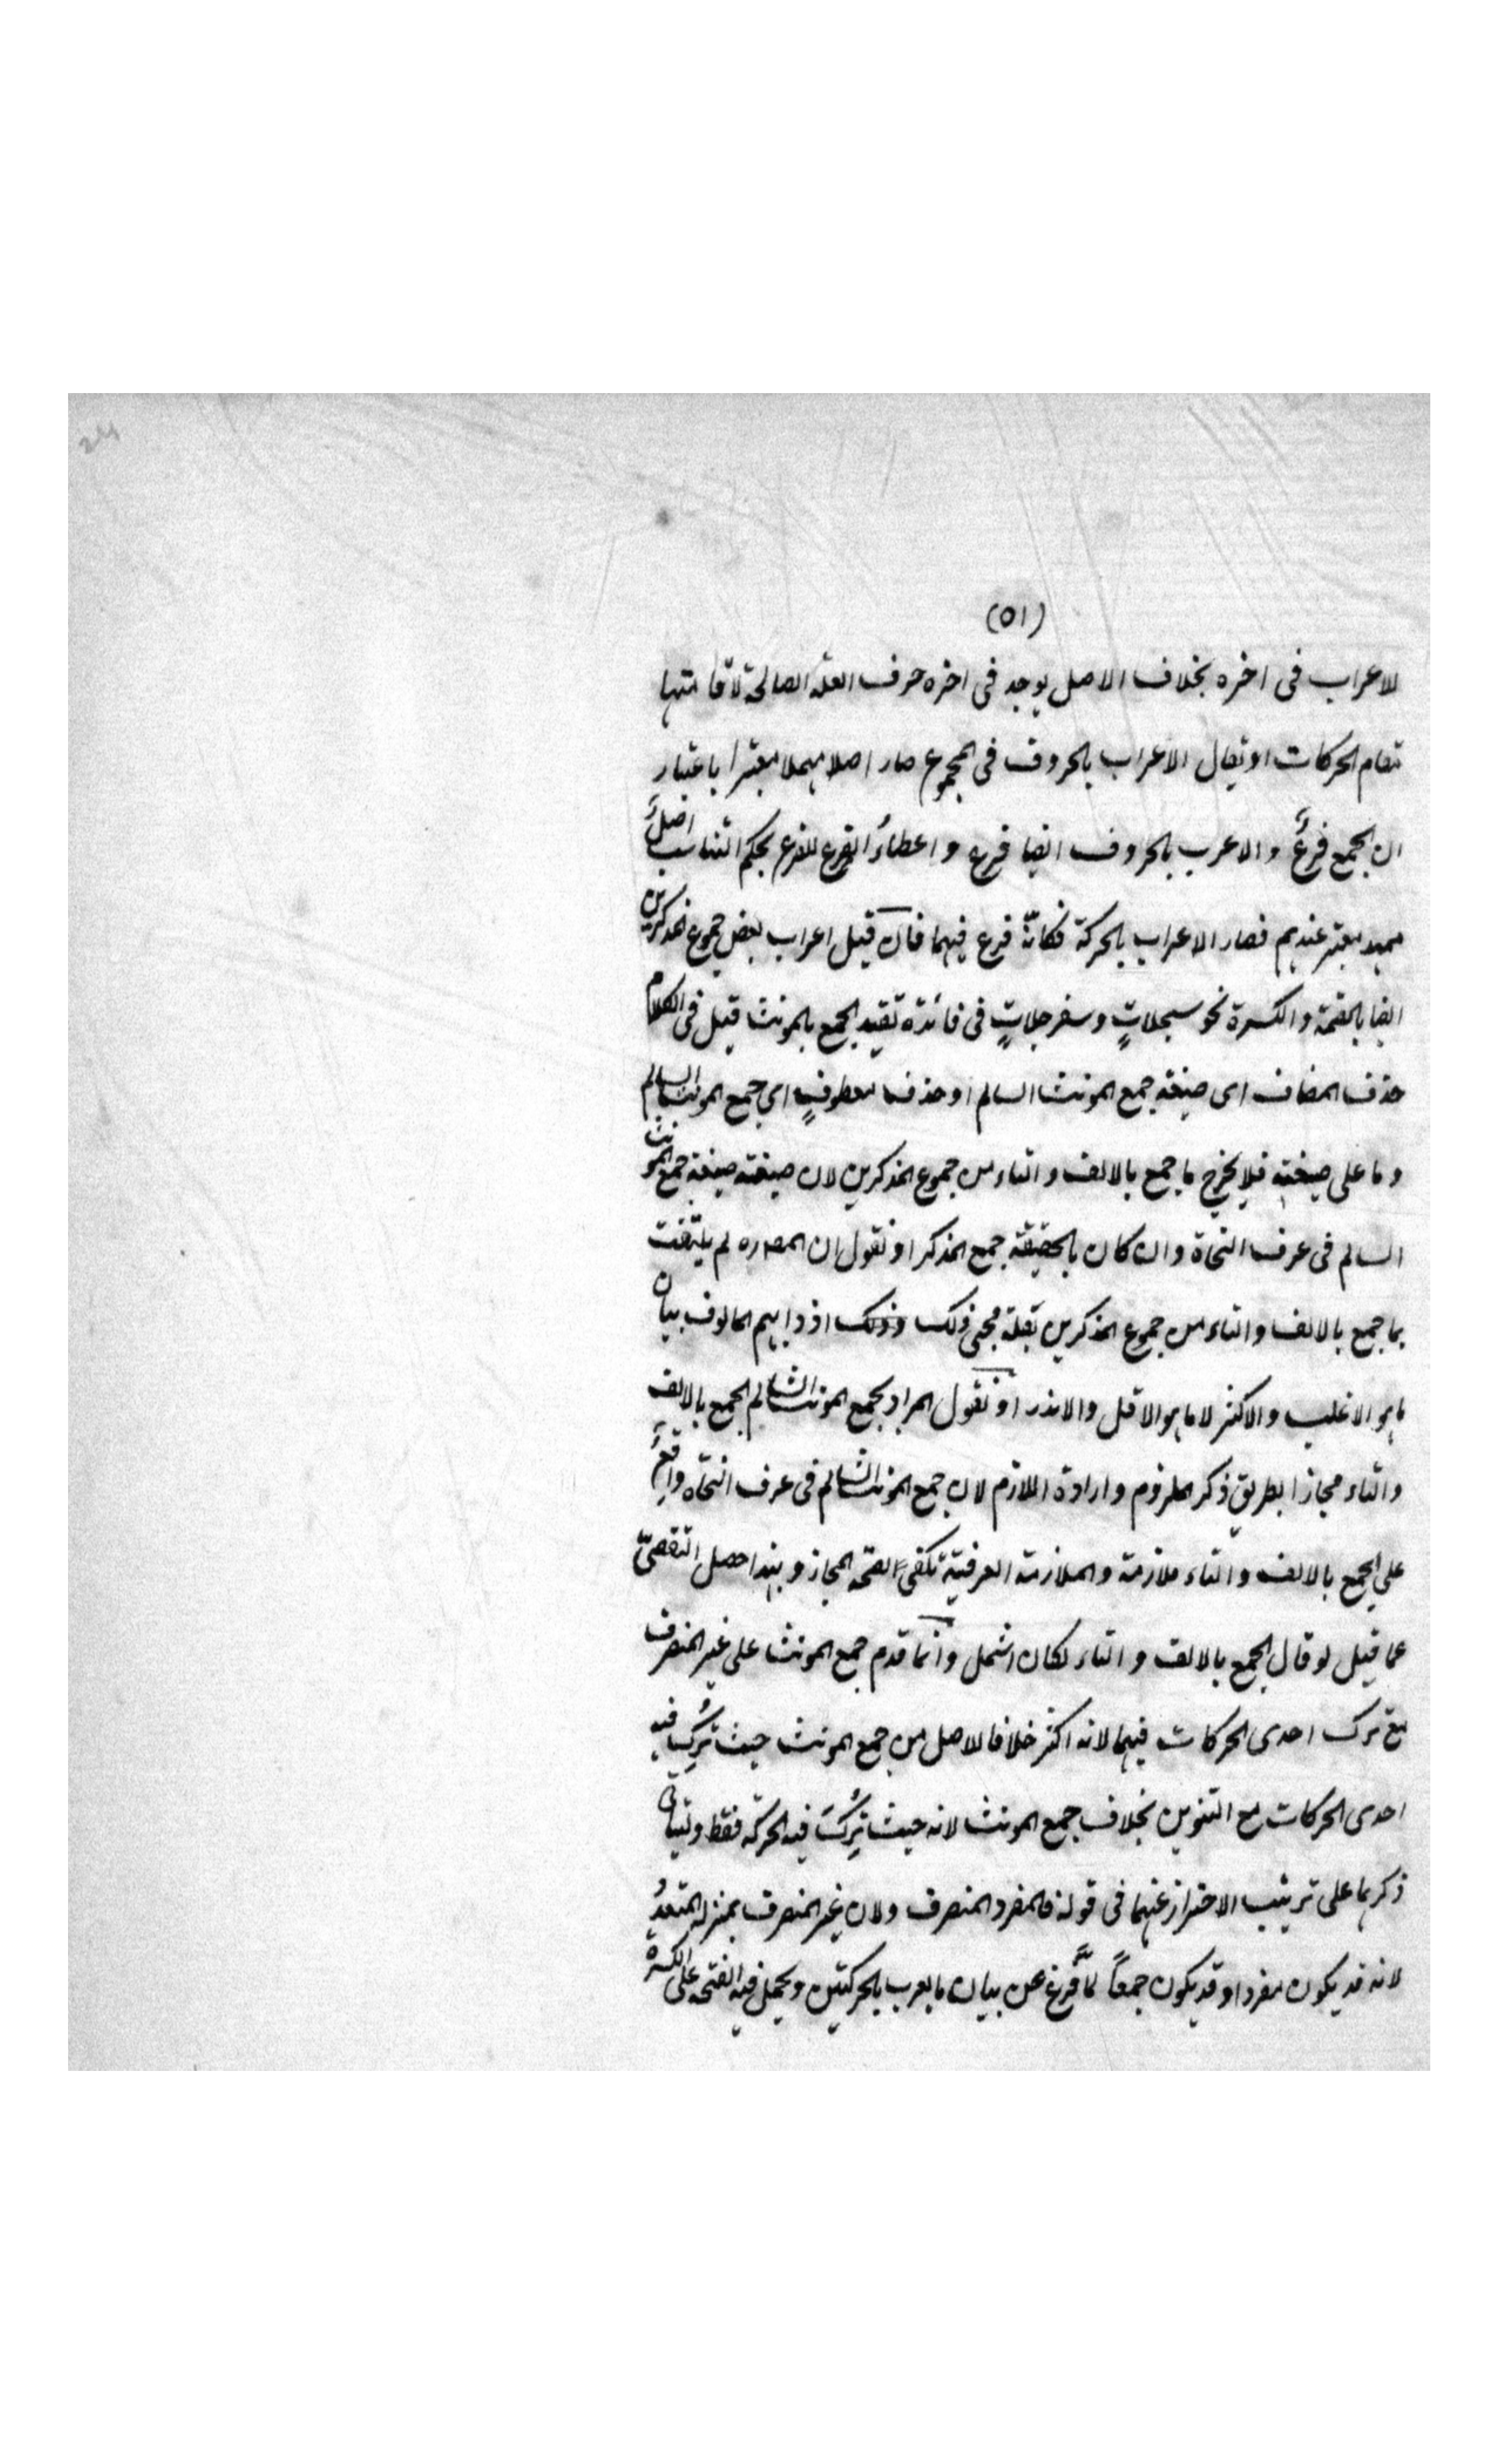 (٥١)
للاعراب فى اخره بخلاف الاصل يوجد فى اخره حرف العلة الصالحة لاقامتها
مقام الحركات او يقال الاعراب بالحروف فى المجموع صار اصلا مهملا معتبرا باعتبار
ان الجمع فرعٌ والاعرب بالحروف ايضا فرع و اعطاءُ الفرع للفرع بحكم التناسب اصلٌ
ممهد معتبر عندهم فصار الاعراب بالحركة فكانّه فرع فيهما فان قيل اعراب بعض جموع المذكرين
ايضا بالضمة والكسرة نحو سجلاتٍ وسفرجلاتٍ فى فائدة تقييد الجمع بالمونث قيل فى الكلام
حذف المضاف اى صيغة جمع المونث السالم او حذف معطوفٍ اى جمع المونث السالم
وما على صيغته فلا يخرج ما جمع بالالف والتاء من جموع المذكرين لان صيغته صيغة جمع المونث
السالم فى عرف النحاة وان كان بالحقيقة جمع المذكر او نقول ان المصـ ره لم يلتفت
بما جمع بالالف والتاء من جموع المذكرين بقلة مجىء ذلك وذلك اذ دابهم المالوف بيان
ما هو الاغلب والاكثر لا ما هو الاقل والاندر او نقول المراد بجمع المونث السالم الجمع بالالف
والتاء مجازا بطريق ذكر الملزوم وارادة اللازم لان جمع المونث السالم فى عرف النحاه واقعٌ
على الجمع بالالف والتاء ملازمة والملازمة العرفيّة تكفى لصحة المجاز وبهذا حصل التفصىّ
عما قيل لو قال الجمع بالالف والتاء لكان اشمل وانما قدم جمع المونث على غير المنصرف
مع ترك احدى الحركات فيهما لانه اكثر خلافا للاصل من جمع المونث حيث تُرِك فيه
احدى الحركات مع التنوين بخلاف جمع المونث لانه حيث تُرِكَ فيه الحركة فقط وليتأتى
ذكرهما على ترتيب الاحتراز عنهما فى قوله فالمفرد المنصرف ولان غير المنصرف بمنزلة المتعدُ
لانه قد يكون مفردا وقد يكون جمعاً لمّا فرغ عن بيان ما يعرب بالحركتين ويحمل فيه الفتحة على الكسرة